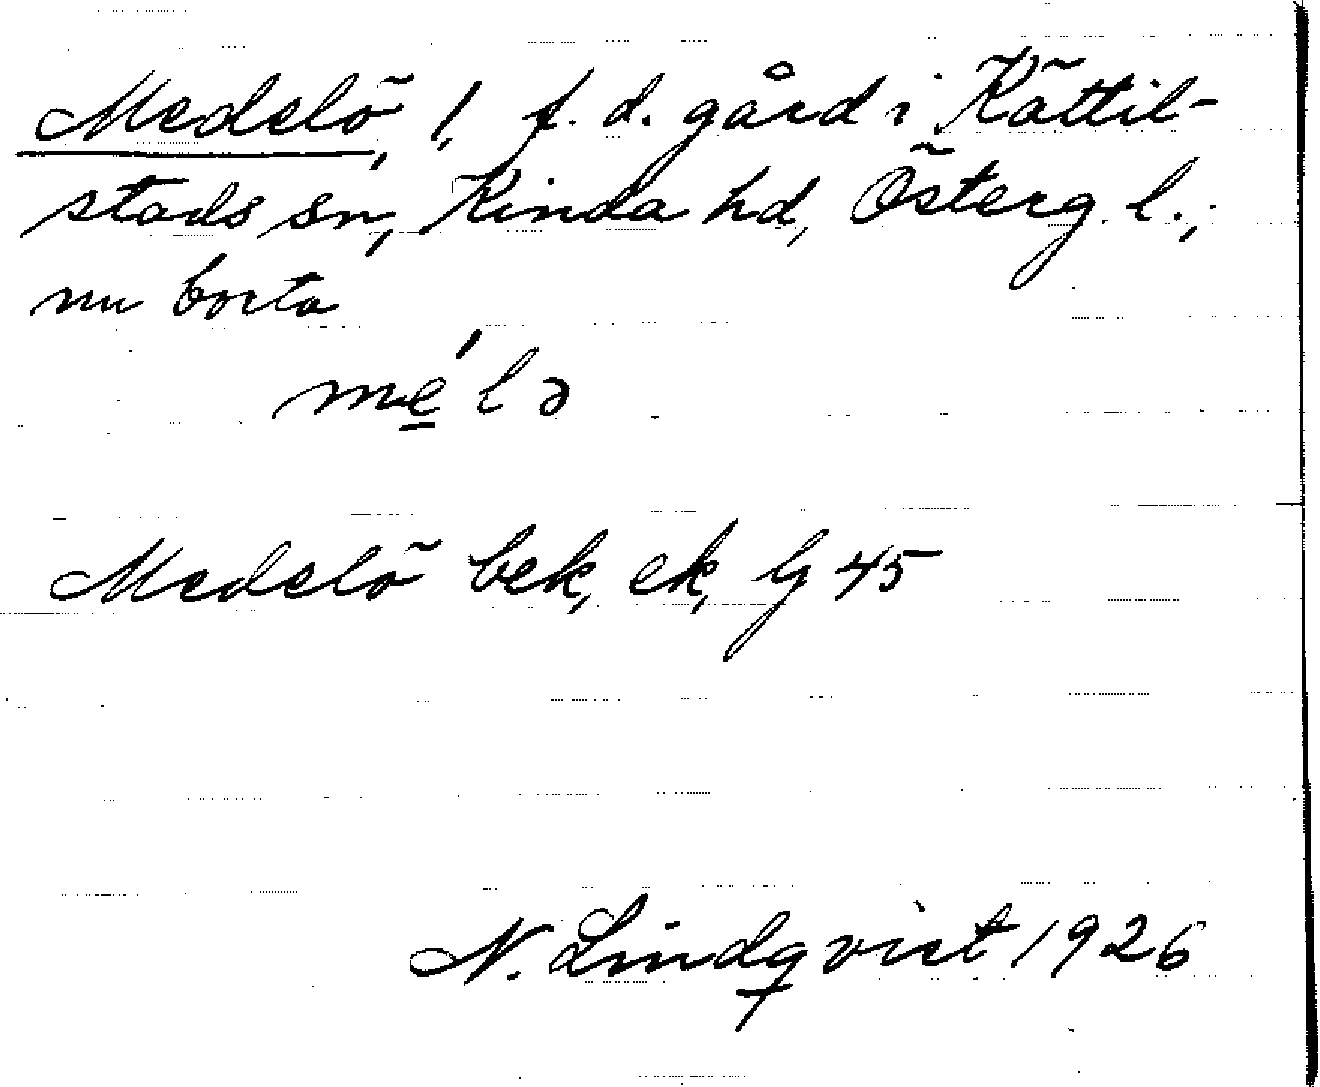 Medelö, 1, f. d. gård i Kättil-
stads sn, Kinda hd, Österg. l.,
nu borta
me̲´lə
Medelö bek, ek, G 45
N. Lindqvist 1926